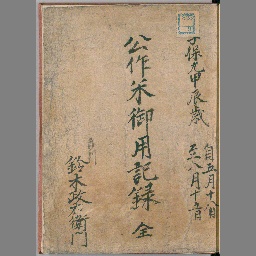 天保九甲辰歳
自五月十八日
至八月十二日
公作米御用記録 全
鈴木政右衛門